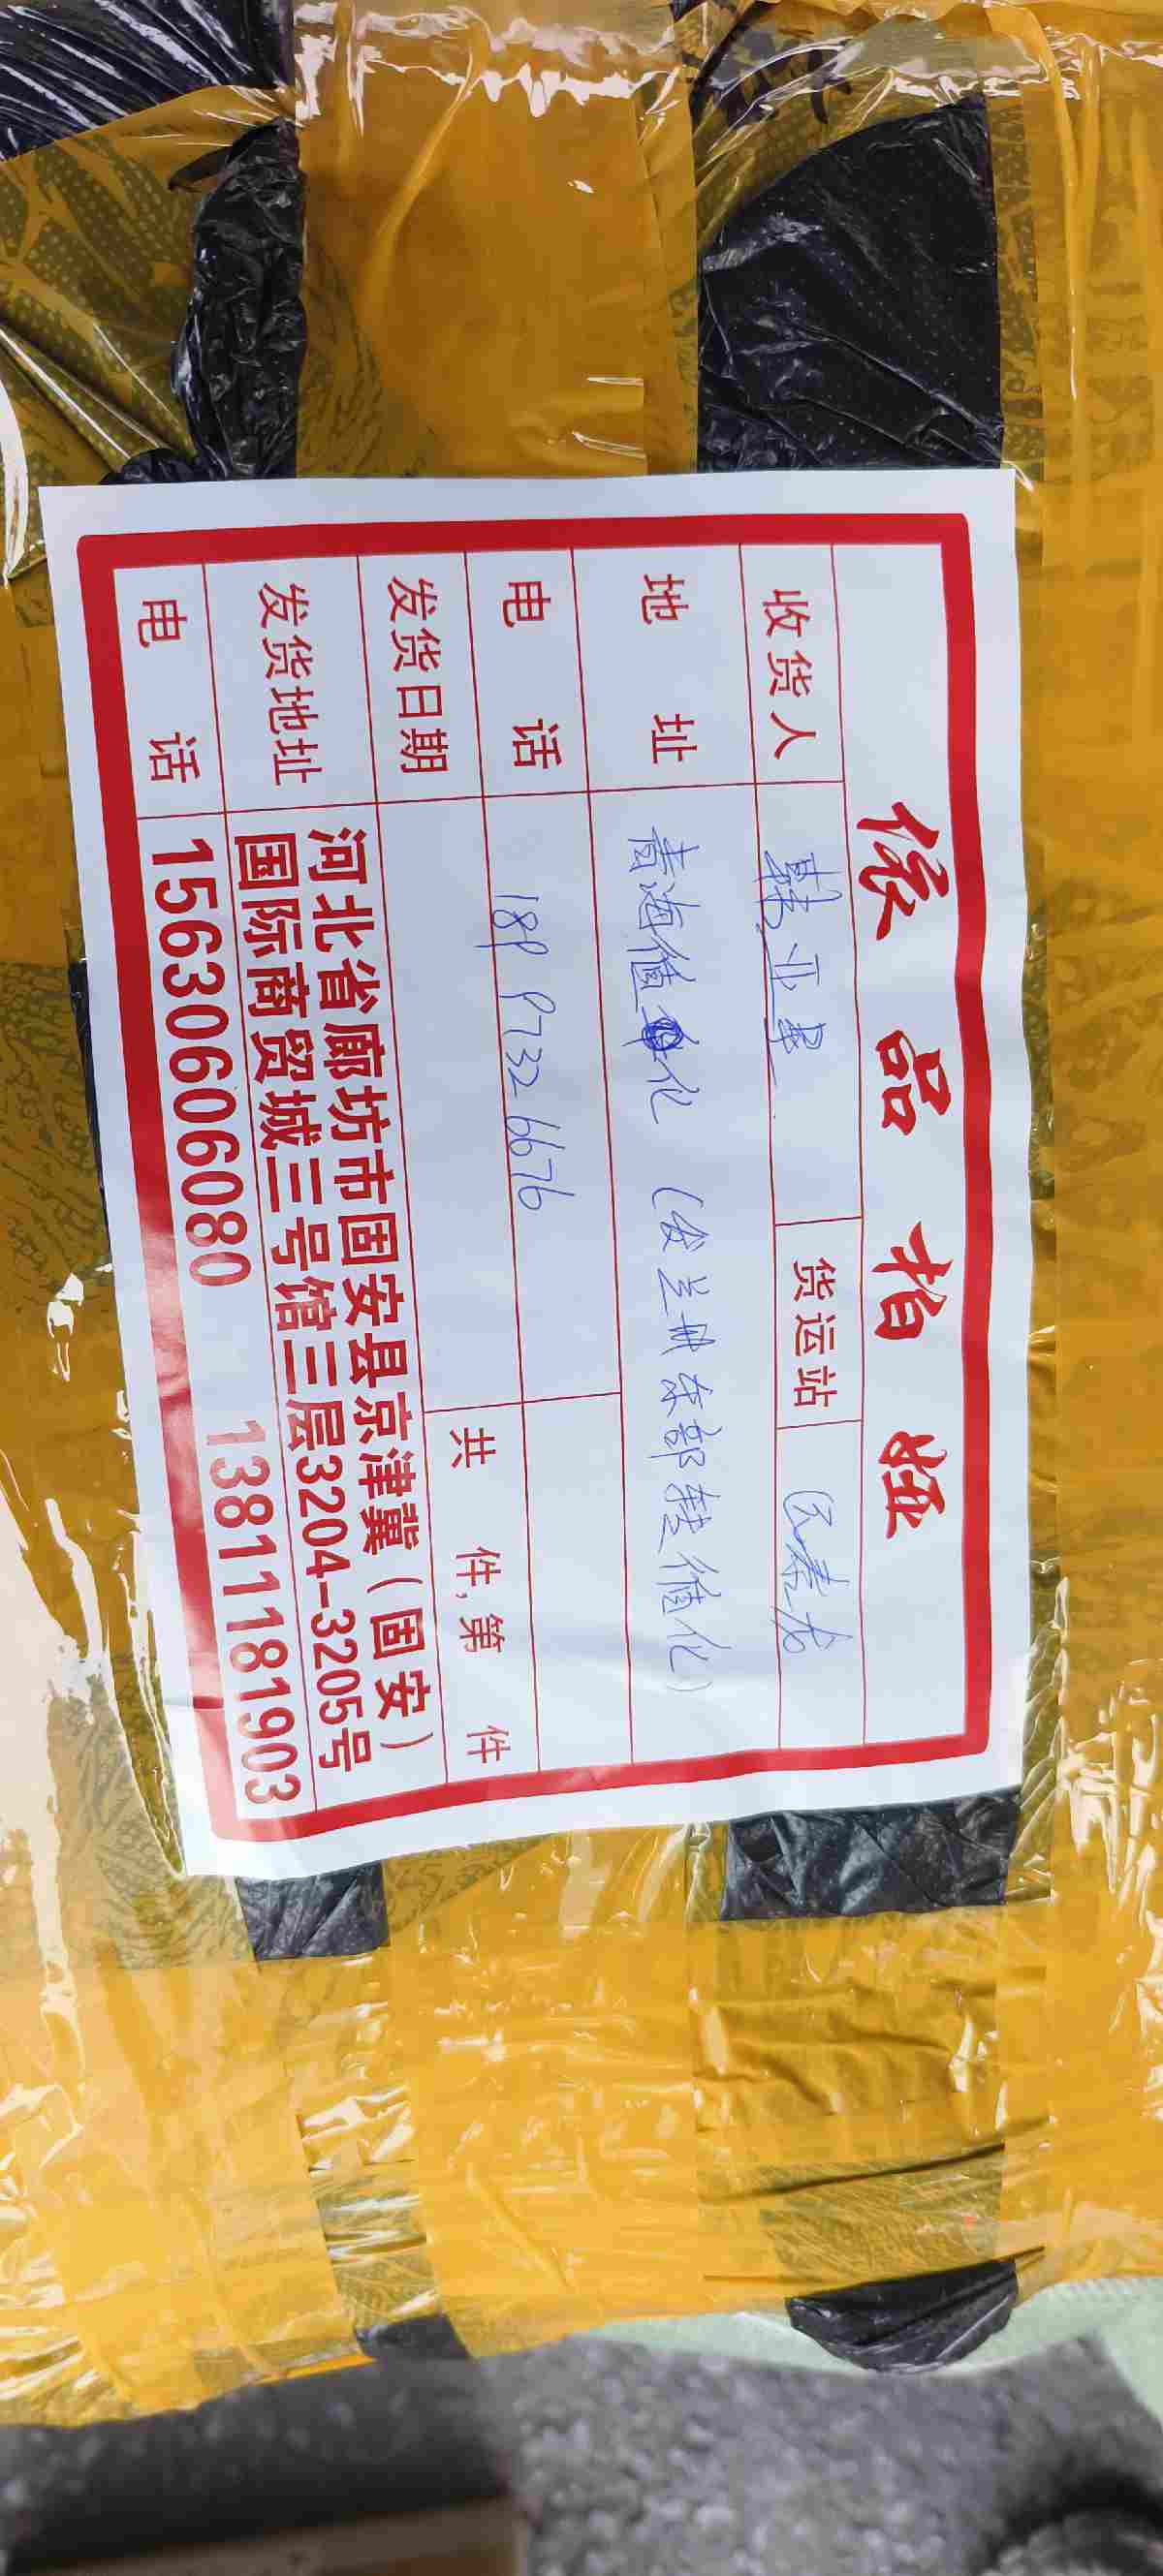 依品柏娅
收货人 韩亚军 货运站 民泰龙
地址 青海德令化 (发兰州东部转德化)
电话 189 9732 6676
发货日期 共 件,第 件
发货地址 河北省廊坊市固安县京津冀(固安)
国际商贸城三号馆三层3204-3205号
电话 15630606080 13811181903